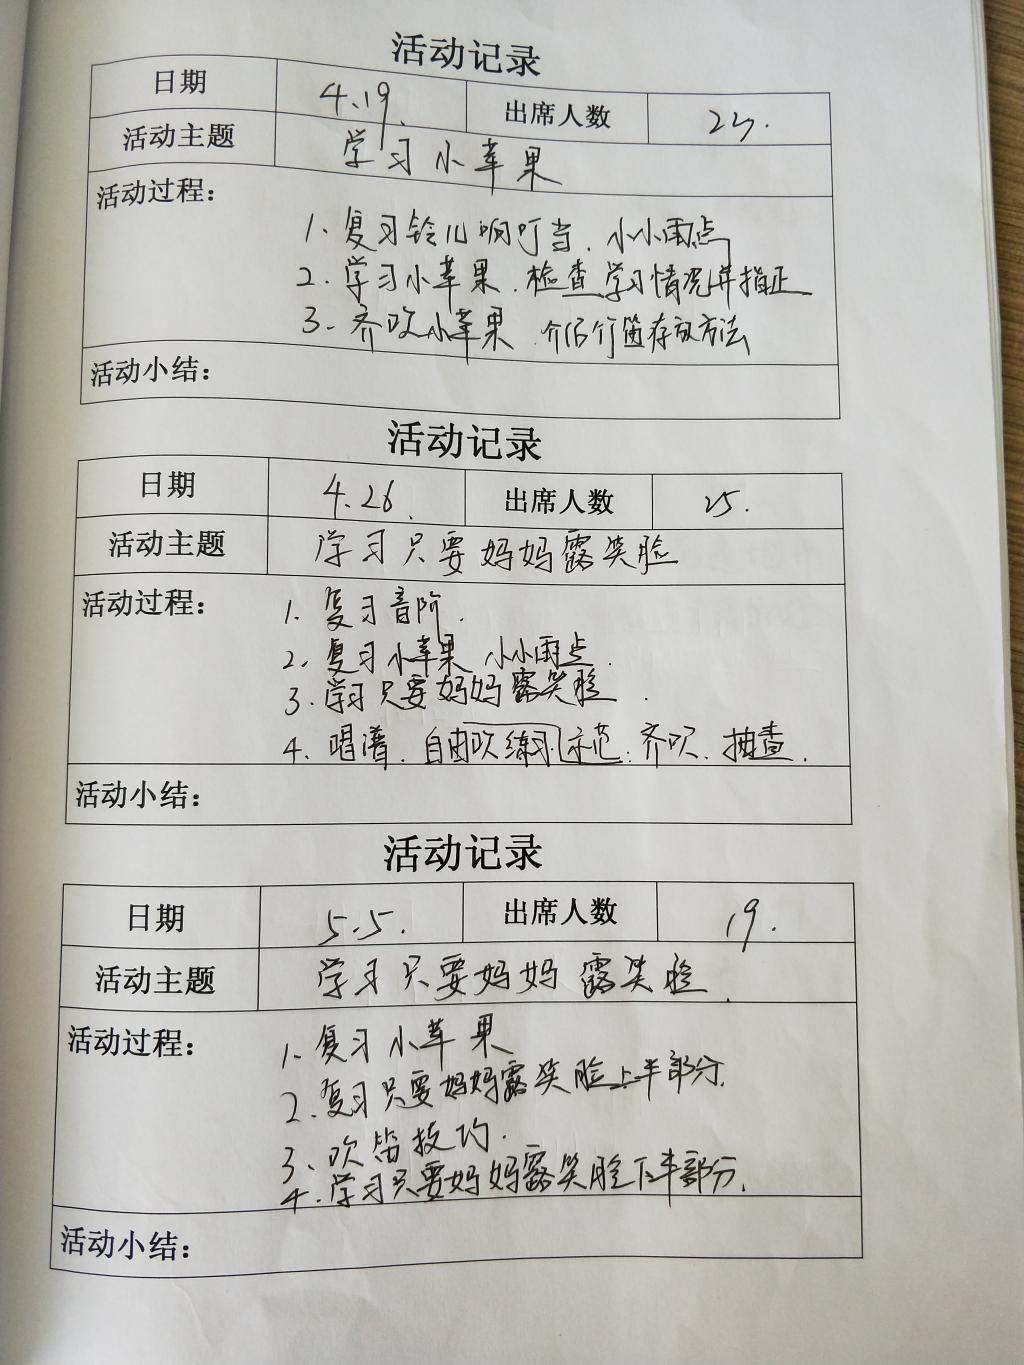 活动记录
日期 4.19. 出席人数
活动主题 学习小苹果
活动过程：
1、复习铃儿响叮当、小小雨点
2、学习小苹果、检查学习情况并指正
3、齐吹小苹果 介绍竹笛存放方法
活动小结：
活动记录
日期 4.26. 出席人数 25.
活动主题 学习只要妈妈露笑脸
活动过程：
1、复习音阶.
2、复习小苹果 小小雨点.
3、学习只要妈妈露笑脸.
4、唱谱、自由吹练习、示范、齐吹、抽查.
活动小结：
活动记录
日期 5.5. 出席人数 19.
活动主题 学习只要妈妈露笑脸.
活动过程：
1、复习小苹果
2、复习只要妈妈露笑脸上半部分.
3、吹笛技巧.
4、学习只要妈妈露笑脸下半部分.
活动小结：